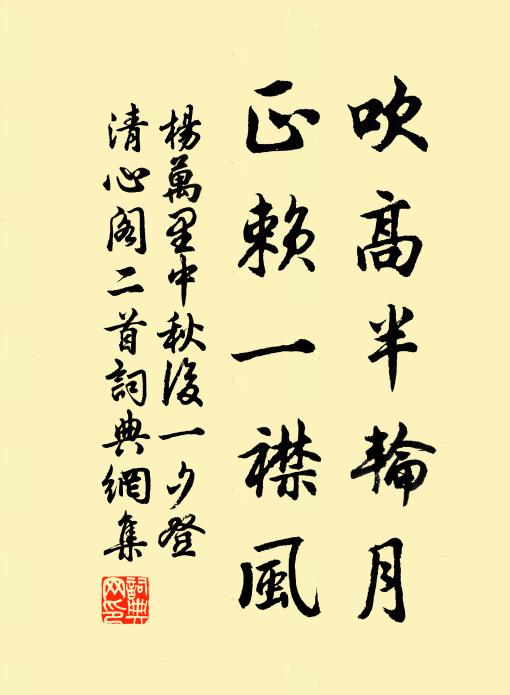 吹高半輪月
正賴一襟風
楊萬里中秋後一夕登
清心閣二首詞典網集
詞典
网印